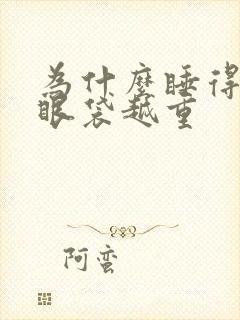 为什麼睡得
眼袋越重
阿蛮